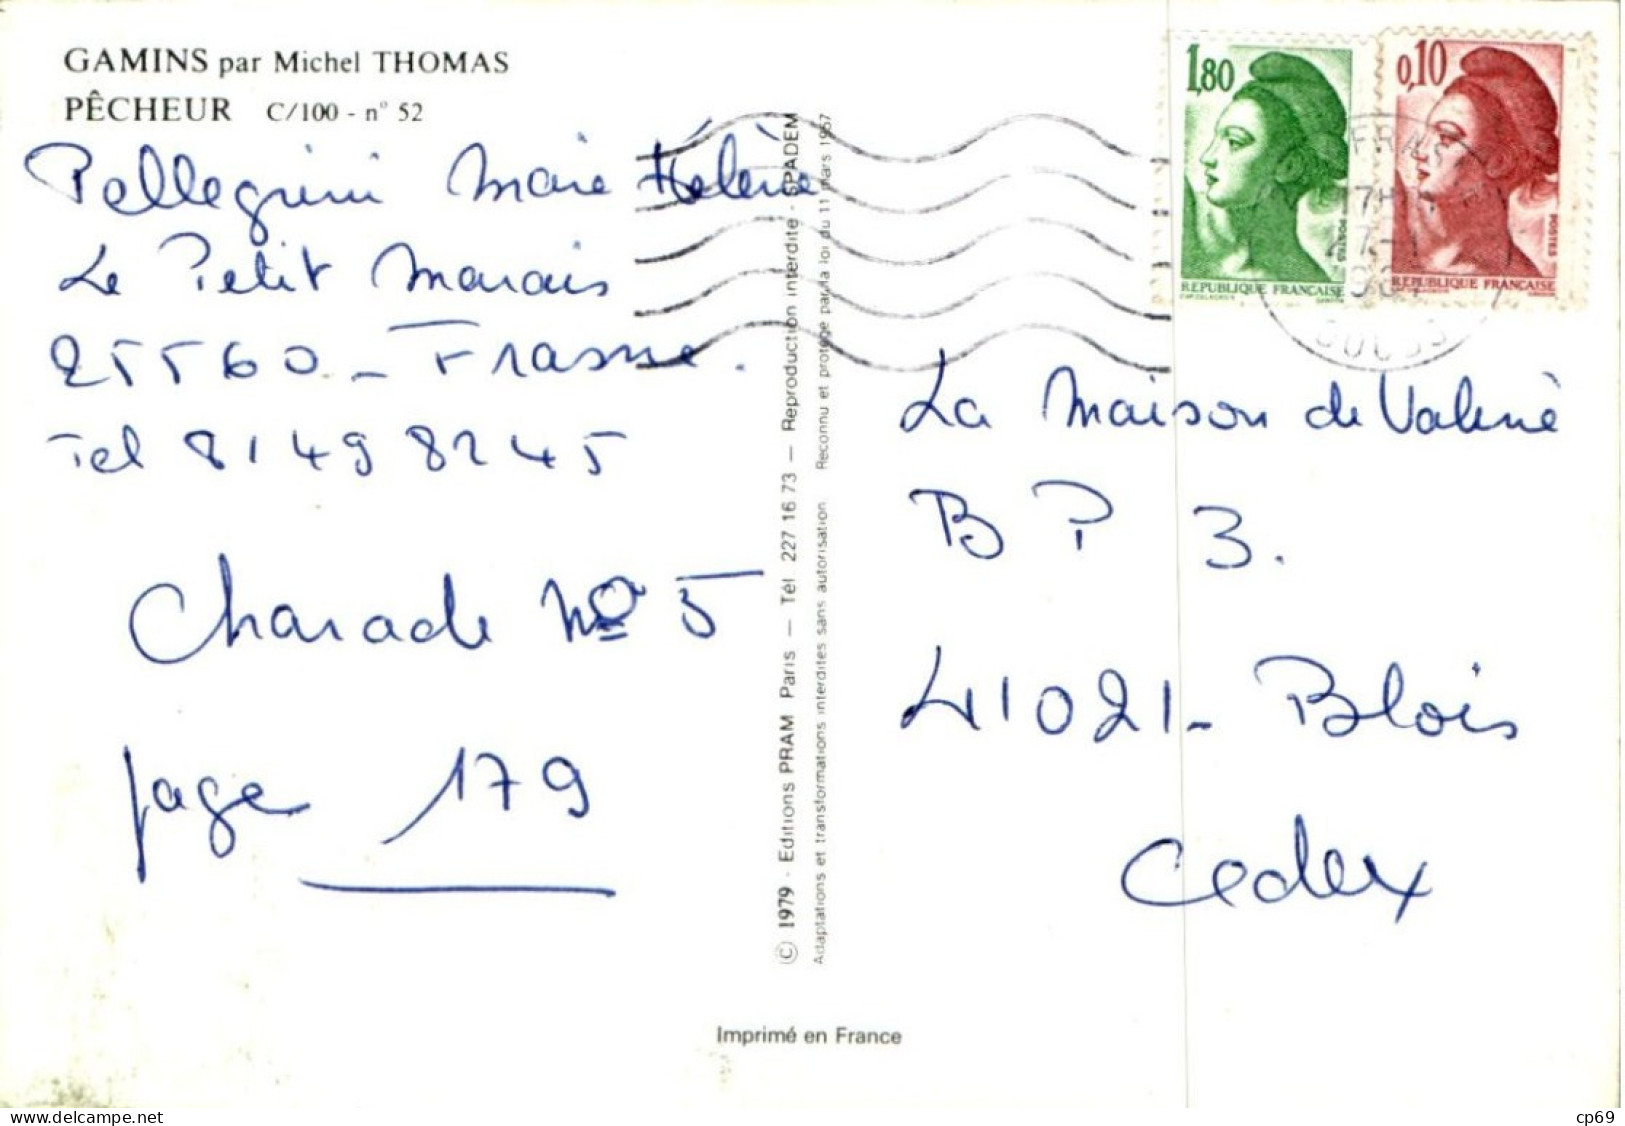 GAMINS par Michel THOMAS
PÊCHEUR C/100 - n° 52
Pellegrini Marie Hélène
Le Petit Marais
25560 - Frasne.
Tel 81 49 82 45
Charade No 5
page 179
© 1979 - Editions PRAM Paris — Tél 227 16 73 — Reproduction interdite - SPADEM
Adaptations et transformations interdites sans autorisation Reconnu et protégé par la loi du 11 mars 1957
Imprimé en France
1,80
POSTES
REPUBLIQUE FRANÇAISE
0,10
POSTES
REPUBLIQUE FRANÇAISE
La Maison de Valérie
B P 3.
41021 - Blois
Cedex
www.delcampe.net
cp69